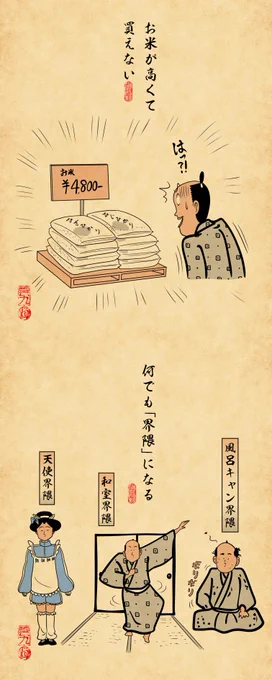 お米が高くて
買えない
はっ?!
お米
¥4,800-
何でも「界隈」になる
風呂キャン界隈
和室界隈
天使界隈
ボリボリ